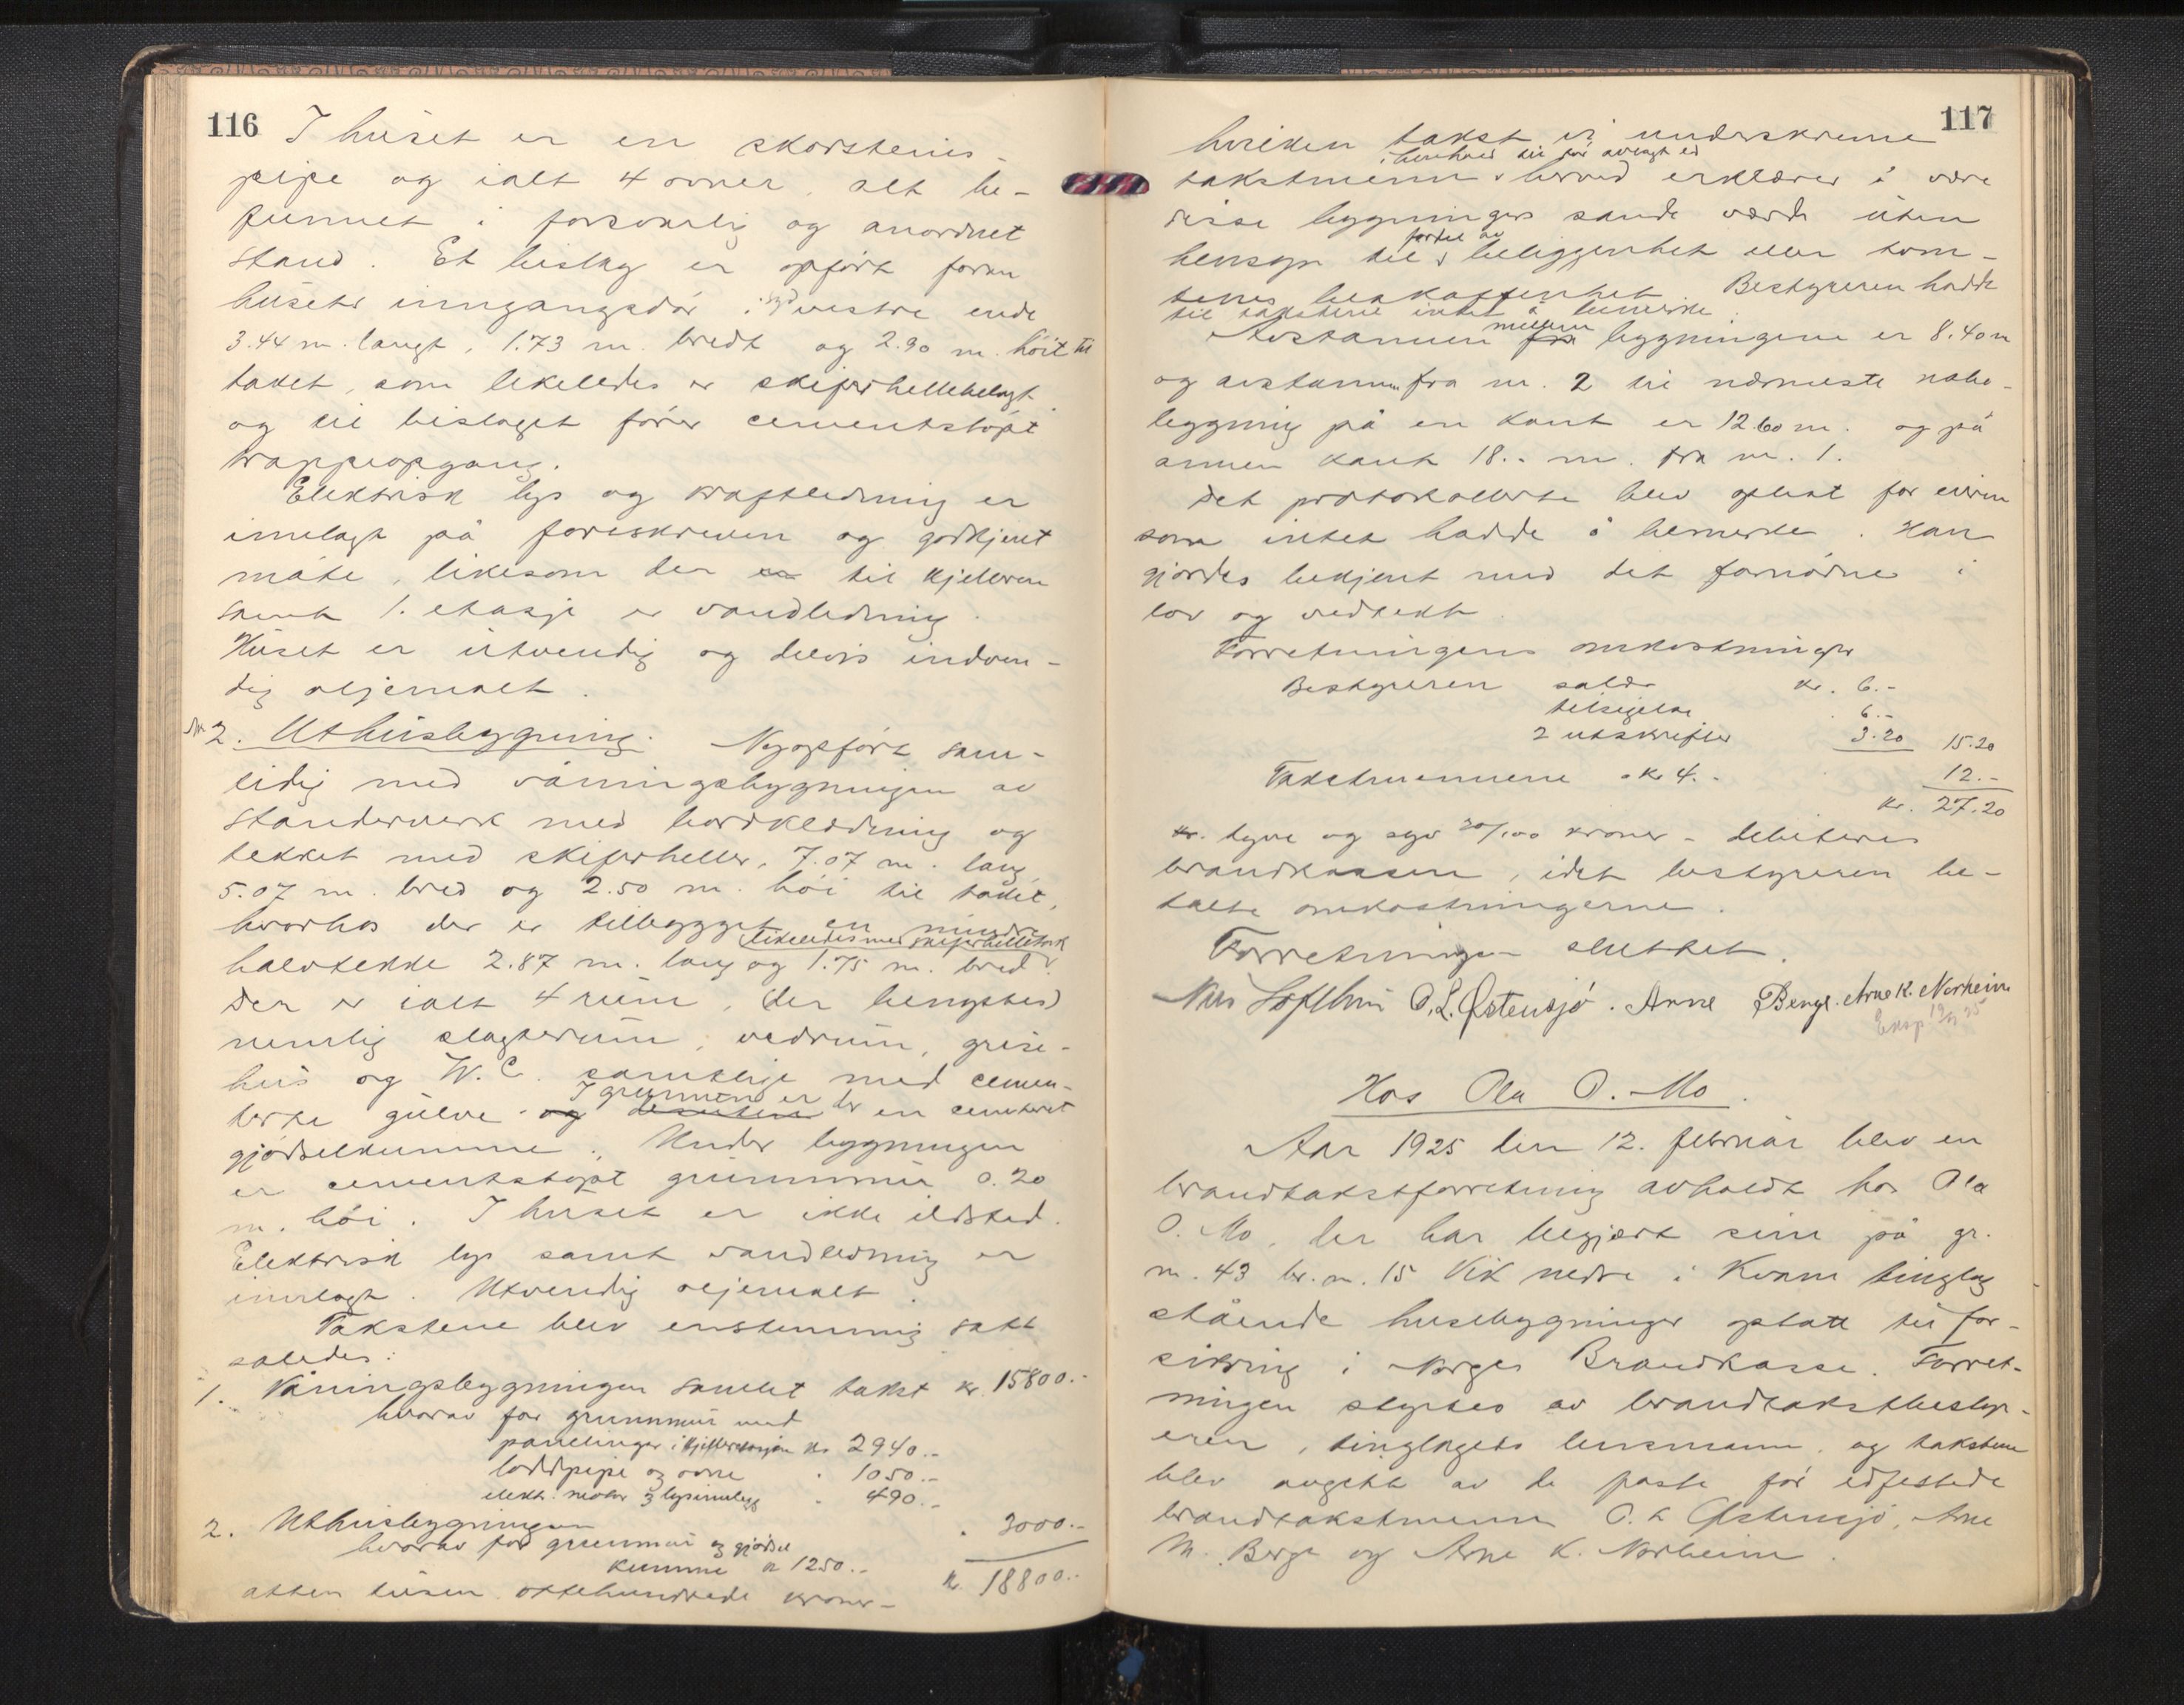 116
I huset er en skorsteins-
pipe og ialt 4 ovner, alt be-
funnet i forsvarlig og anordnet
stand. Et bislag er opført foran
husets inngangsdør i sydvestre ende
3.44 m. langt, 1.73 m. bredt og 2.90 m. høit til
taket, som likeledes er skiferhellebelagt
og til bislaget fører cementstøpt
trappeopgang.
Elektrisk lys og kraftledning er
innlagt på foreskreven og godkjent
måte, likesom der er til kjelleren
samt 1. etasje er vandledning.
Huset er utvendig og delvis indven-
dig oljemalt.
Nr 2. Uthusbygning. Nyopført sam-
tidig med våningsbygningen av
standerverk med bordklædning og
tekket med skiferheller, 7.07 m. lang,
5.07 m. bred og 2.50 m. høi til taket,
hvorhos der er tilbygget en mindre
likeledes med skiferhelletak
halvtekke 2.87 m. lang og 1.75 m. bred.
Der er ialt 4 rum, (der benyttes)
nemlig slagterum, vedrum, grise-
hus og W.C. samtlige med cemen-
I grunnen er
terte gulve og desuten er en cementert
gjødselkumme. Under bygningen
er cementstøpt grunnmur 0.20
m. høi. I huset er ikke ildsted.
Elektrisk lys samt vandledning er
innlagt. Utvendig oljemalt.
Takstene blev enstemmig satt
således:
1. Våningsbygningen samlet takst kr. 15800.-
hvorav for grunnmur med
panelinger i kjelleretasjen kr 2940.-
loddpipe og ovne " 1050.-
elekt. motor og lysinnlegg " 490.-
2. Uthusbygningen " 3000.-
hvorav for grunnmur og gjødsel
kumme kr 1250.-
kr. 18800.-
atten tusen ottehundrede kroner-
117
hvilken takst vi underskrevne
i henhold til før avlagt ed
takstmenn herved erklærer å være
disse bygningers sande værdi uten
fordel av
hensyn til beliggenhet eller tom-
tenes beskaffenhet. Bestyreren hadde
til takstene intet å bemerke.
mellem
Avstannen fra bygningene er 8.40 m
og avstannen fra nr. 2 til nærmeste nabo-
bygning på en kant er 12.60 m. og på
annen kant 18.- m. fra nr. 1.
Det protokollerte blev oplest for eieren
som intet hadde å bemerke. Han
gjordes bekjent med det fornødne i
lov og vedtekt.
Forretningens omkostninger
Bestyreren salær kr. 6.-
tilsigelse " 6.-
2 utskrifter 3.20 15.20
Takstmennene a kr 4.- 12.-
kr. 27.20
kr. tyve og syv 20/100 kroner - debiteres
brandkassen, idet bestyreren be-
talte omkostningerne.
Forretningen sluttet.
Nils Softhun O. L. Østensjø. Arne Berge. Arne K. Norheim
Eksp. 19/2 25
Hos Ola O. Mo.
Aar 1925 den 12. februar blev en
brandtakstforretning avholdt hos Ola
O. Mo, der har begjært sine på gr.
nr. 43 br. nr. 15 Vik nedre i Kvam tinglag
stående husebygninger optatt til for-
sikring i Norges Brandkasse. Forret-
ningen styrtes av brandtakstbestyr-
eren, tinglagets lensmann, og takstene
blev avgitt av de faste før edfestede
brandtakstmenn O. L. Østensjø, Arne
M. Berge og Arne K. Norheim.